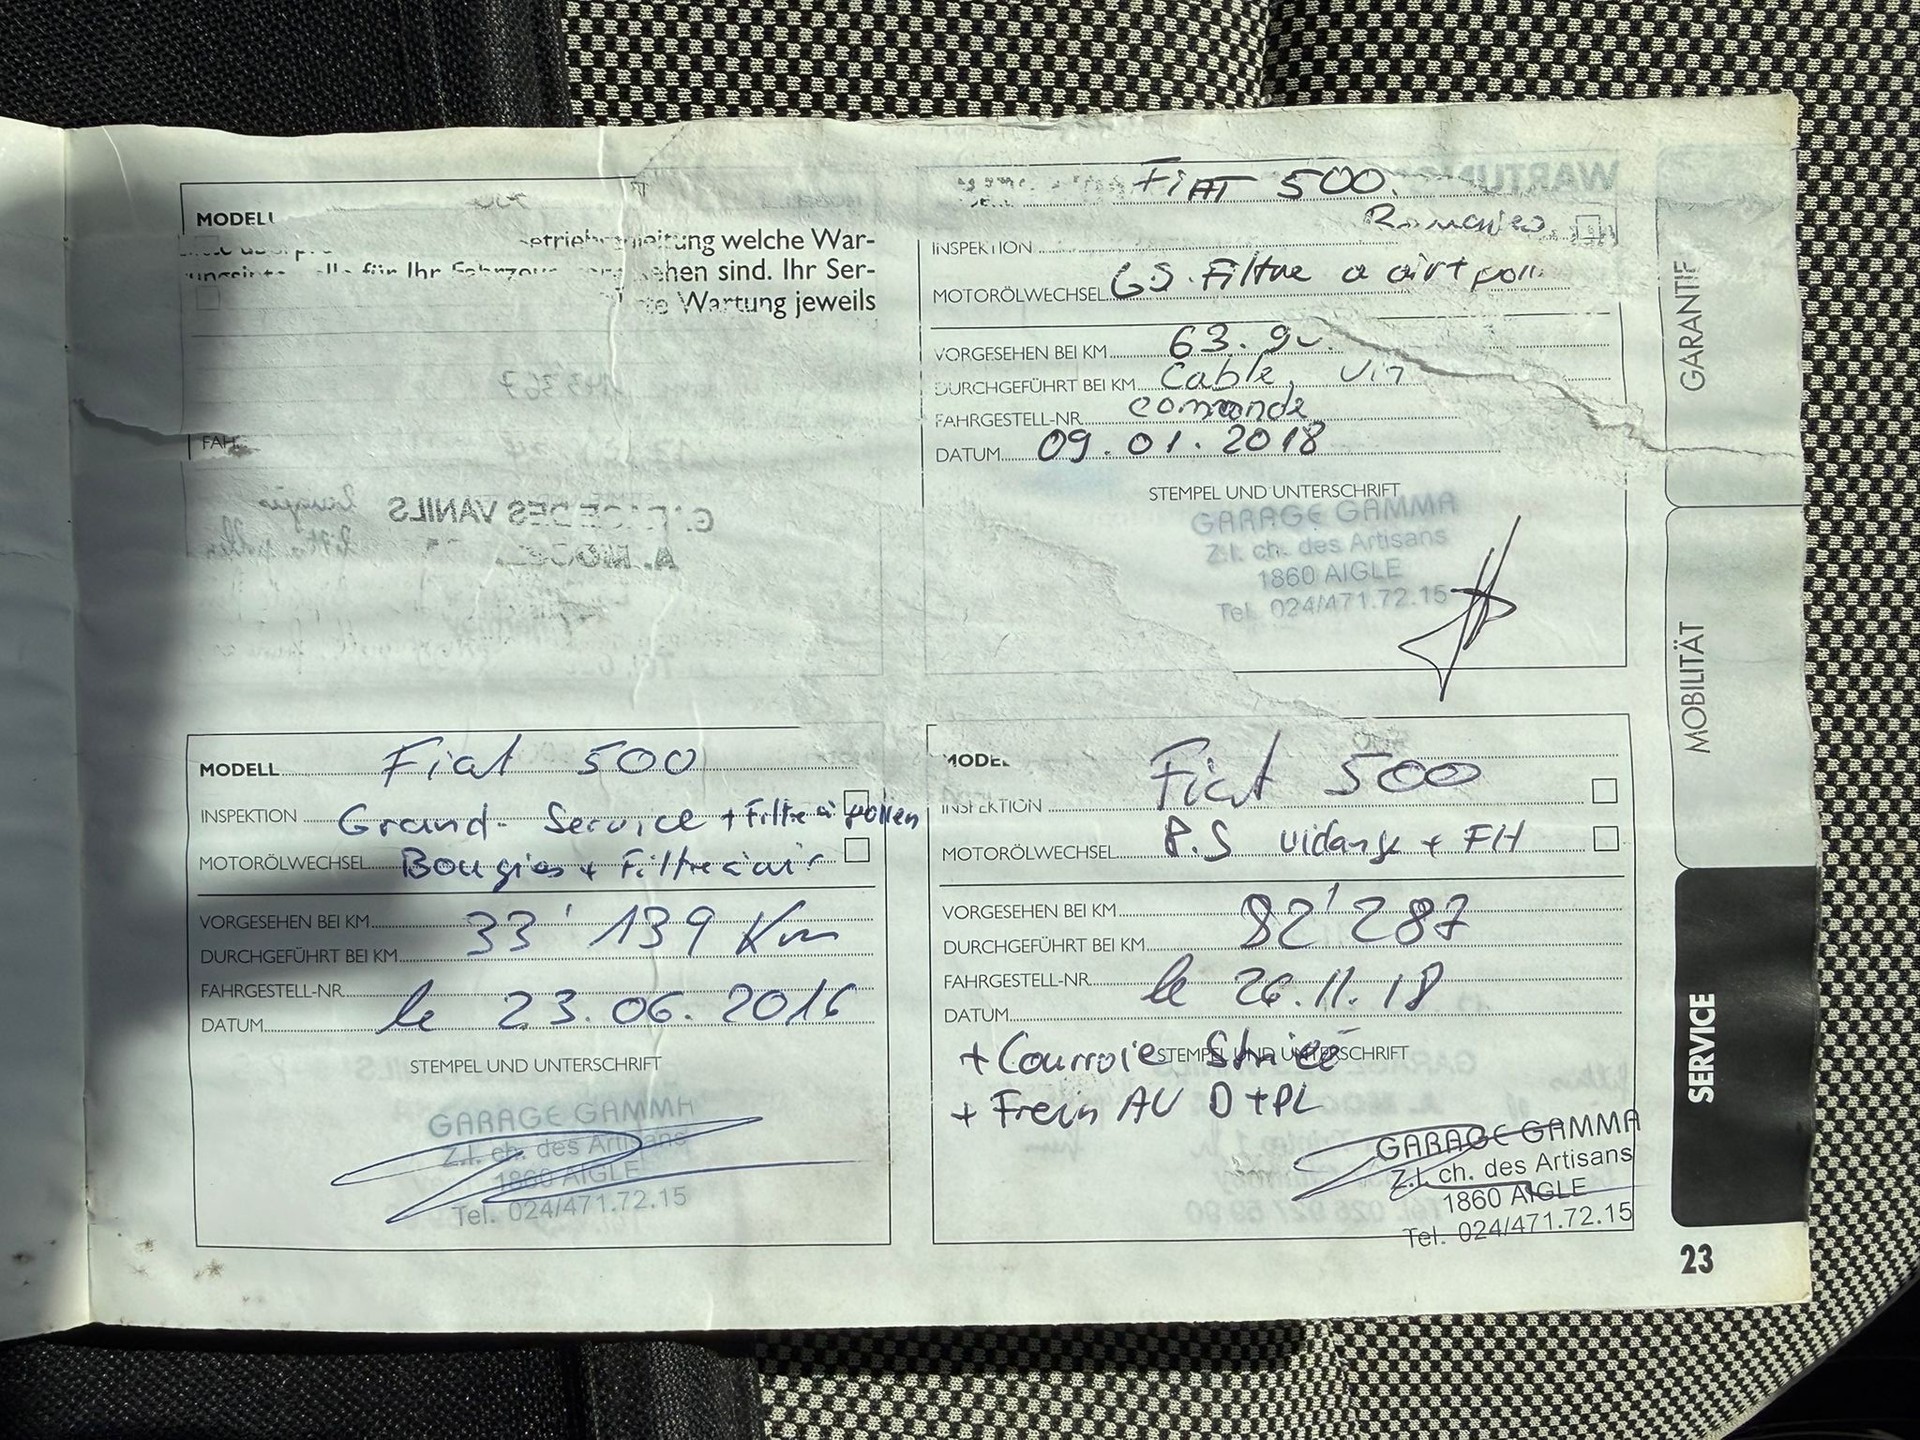 MODELL
etriebsanleitung welche War-
für Ihr sehen sind. Ihr Ser-
te Wartung jeweils
GARAGE DES VANILS
FIAT 500.
INSPEKTION
MOTORÖLWECHSEL GS. Filtre a air + poll
VORGESEHEN BEI KM 63.90
DURCHGEFÜHRT BEI KM Cable, Vin
FAHRGESTELL-NR. commande
DATUM 09.01.2018
STEMPEL UND UNTERSCHRIFT
GARAGE GAMMA
Z.I. ch. des Artisans
1860 AIGLE
Tel. 024/471.72.15
MODELL Fiat 500
INSPEKTION Grand-Service + Filtre à pollen
MOTORÖLWECHSEL Bougies + Filtre à air
VORGESEHEN BEI KM 33'139 Km
DURCHGEFÜHRT BEI KM
FAHRGESTELL-NR.
DATUM le 23.06.2016
STEMPEL UND UNTERSCHRIFT
GARAGE GAMMA
Z.I. ch. des Artisans
1860 AIGLE
Tel. 024/471.72.15
MODEL Fiat 500
INSPEKTION
MOTORÖLWECHSEL P.S vidange + FH
VORGESEHEN BEI KM 82'287
DURCHGEFÜHRT BEI KM
FAHRGESTELL-NR. le 26.11.18
DATUM
STEMPEL UND UNTERSCHRIFT
+ Courroie Striée
+ Frein AV D+PL
GARAGE GAMMA
Z.I. ch. des Artisans
1860 AIGLE
Tel. 024/471.72.15
GARANTIE
MOBILITÄT
SERVICE
23